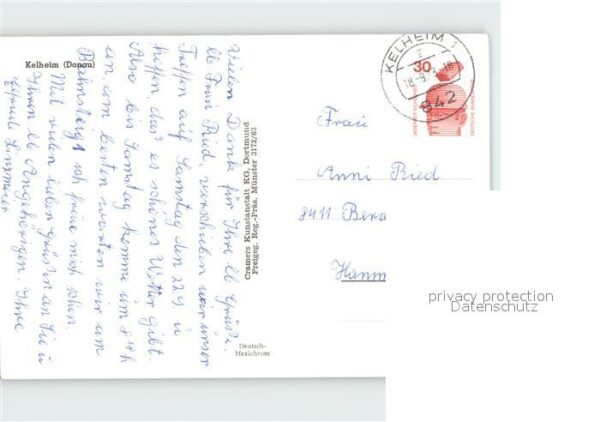 Kelheim (Donau)
Vielen Dank für Ihre lb Grüße.
lb Frau Ried, verschieben wir unser
Treffen auf Samstag den 22.9 u
hoffen, daß es schönes Wetter gibt.
Also bis Samstag komme um 8 48h
an am besten warten wir am
Bahnsteig 1 ich freue mich schon
Mit vielen lieben Grüßen an Sie u
Ihren lb Angehörigen. Ihre
Cramers Kunstanstalt KG, Dortmund
Freigeg. Reg.-Präs. Münster 3172/63
Deutsch-
Mexichrom
KELHEIM 1
842
30
Frau
Anni Ried
8411
privacy protection
Datenschutz